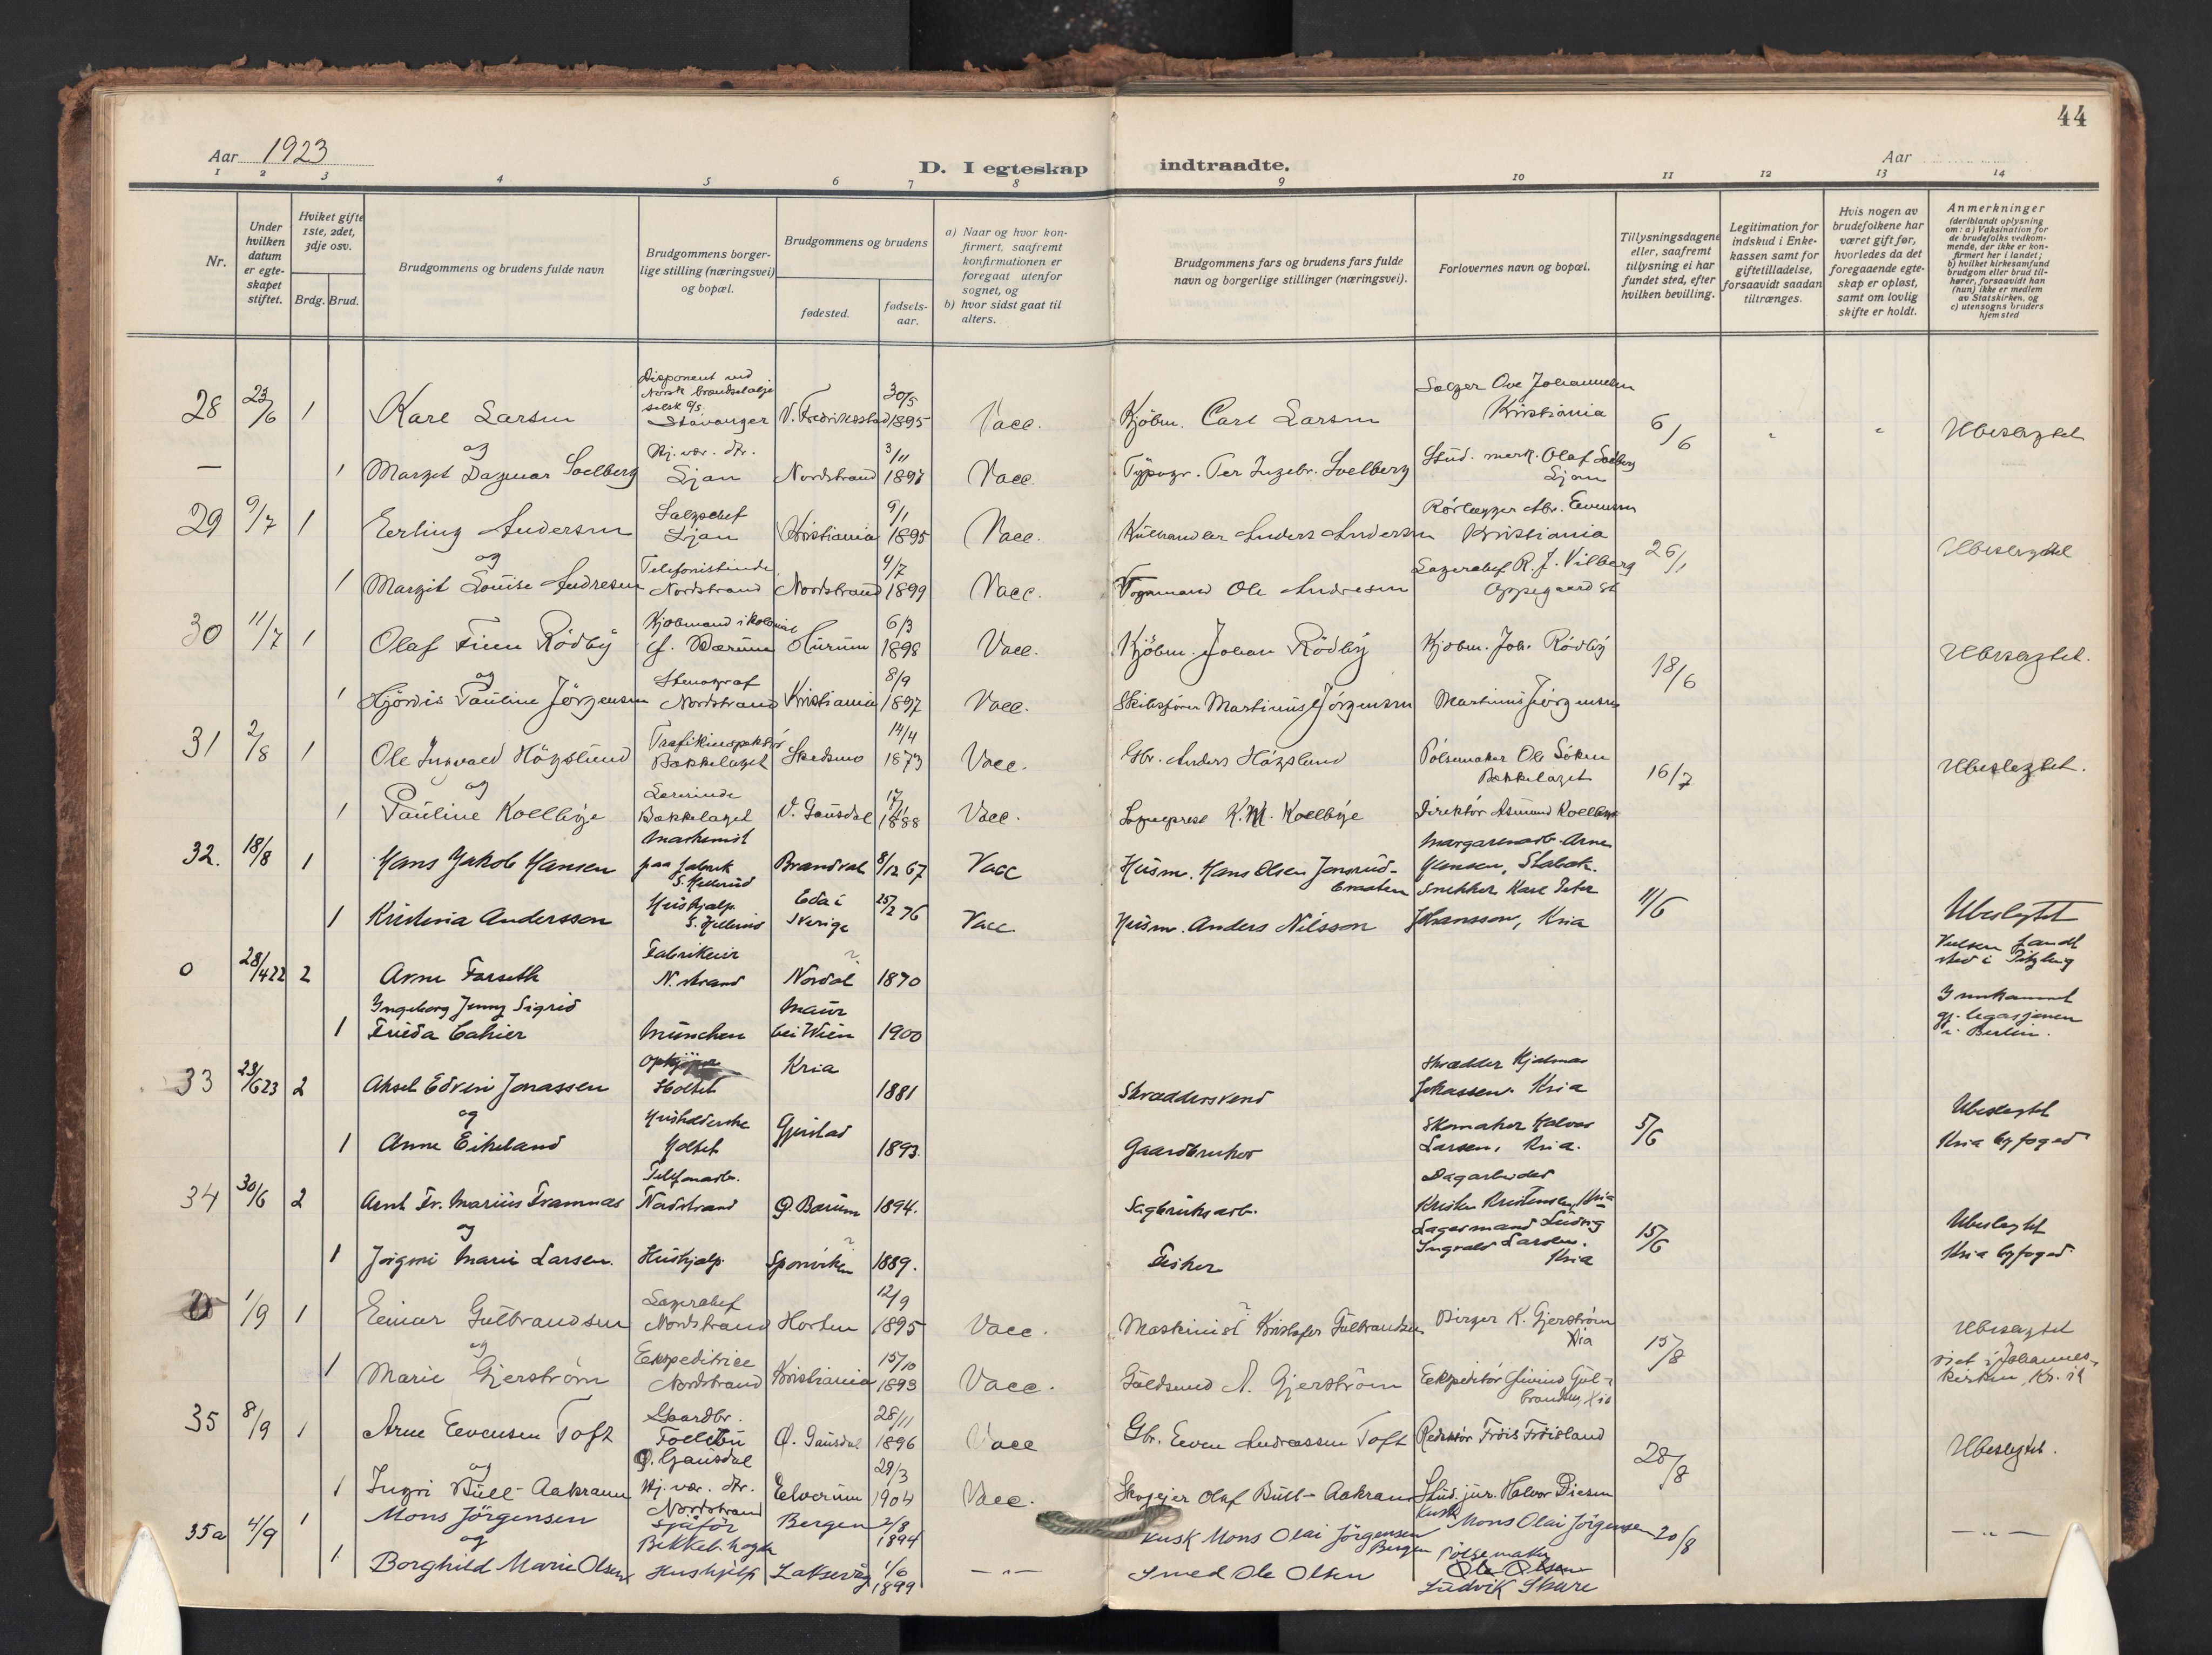 44
Aar 1923
D. I egteskap indtraadte.
Aar
1 2 3 4 5 6 7 8 9 10 11 12 13 14
Nr.
Under hvilken datum er egteskapet stiftet.
Hvilket gifte 1ste, 2det, 3dje osv.
Brdg. Brud.
Brudgommens og brudens fulde navn
Brudgommens borgerlige stilling (næringsvei) og bopæl.
Brudgommens og brudens
fødested.
fødselsaar.
a) Naar og hvor konfirmert, saafremt konfirmationen er foregaat utenfor sognet, og
b) hvor sidst gaat til alters.
Brudgommens fars og brudens fars fulde navn og borgerlige stillinger (næringsvei).
Forlovernes navn og bopæl.
Tillysningsdagene eller, saafremt tillysning ei har fundet sted, efter hvilken bevilling.
Legitimation for indskud i Enkekassen samt for giftetilladelse, forsaavidt saadan tiltrænges.
Hvis nogen av brudefolkene har været gift før, hvorledes da det foregaaende egteskap er opløst, samt om lovlig skifte er holdt.
Anmerkninger
(deriblandt oplysning om: a) Vaksination for de brudefolks vedkommende, der ikke er konfirmert her i landet; b) hvilket kirkesamfund brudgom eller brud tilhører, forsaavidt han (hun) ikke er medlem av Statskirken, og c) utensogns bruders hjemsted
28 23/6 1 Karl Larsen Disponent ved Norsk Stavanger V. Fredrikstad 30/5 1895 Vacc. Kjøbm. Carl Larsen Ove Johannesen Kristiania 6/6 Ubeslegtet
og
1 Margit Dagmar Solberg Hj. vær. dtr. Ljan Nordstrand 3/11 Vacc. Typogr. Per Ingebr. Solberg Stud. merk. Olaf Solberg Ljan
29 9/7 1 Erling Andersen Ljan Kristiania 9/1 1895 Vacc. Kulhandler Anders Andersen Rörlægger Evensen Kristiania 26/1 Ubeslegtet
og
1 Margit Louise Andresen Telefonistinde Nordstrand Nordstrand 4/7 1899 Vacc. Vognmand Ole Andresen Lagerchef R. J. Vilberg Oppegaard st
30 11/7 1 Olaf Finn Rödby Kjøbmand i kolonial Bærum Hurum 6/3 1898 Vacc. Kjöbm. Johan Rödby Kjöbm. Joh. Rödby 18/6 Ubeslegtet.
og
1 Hjördis Pauline Jörgensen Stenograf Nordstrand Kristiania 8/9 1897 Vacc. Skibsfører Martinius Jörgensen Martinius Jörgensen
31 2/8 1 Ole Ingvald Högslund Trafikinspektör Bækkelaget Skedsmo 14/4 1873 Vacc. Gbr. Anders Högslund Pölsemaker Ole Bækkelaget 16/7 Ubeslegtet.
og
1 Pauline Kolbye Lærerinde Bækkelaget V. Gausdal 1888 Vacc. Sogneprest K. M. Kolbye Direktör Asmund Kolbye
32. 18/8 1 Hans Jakob Hansen Maskinist paa fabrik Brandval 8/12 67 Vacc Husm. Hans Olsen Jonsrud-braaten Margarinarb. Arne Hansen, Stabæk. 11/6 Ubeslegtet
1 Kristina Andersson Hushjælp. Eda i Sverige 25/2 76 Vacc Husm. Anders Nilsson Snekker Karl Peter Johansson, Kria
0 28/4 22 2 Arne Forseth Fabrikeier N. strand Nordal 1870
1 Ingeborg Jenny Sigrid Frieda Cahier München Maur bei Wien 1900 gj. legasjonen i Berlin.
33 23/6 23 2 Aksel Edvin Jonassen Holtet Kria 1881 Skræddersvend Skrædder Hjalmar Johassen. Kria 5/6 Ubeslegtet
og
1 Anne Eikeland Husholderske Holtet Gjerstad 1893. Gaardbruker Skomaker Halvor Larsen, Kria. Kria byfoged
34 30/6 2 Arnt Fr. Marius Framnæs Telefonarb. Nordstrand Ø. Bærum 1894. Sagbruksarb. Dagarbeider Kristen Kristensen, Kria 15/6 Ubeslegtet
og
1 Marie Larsen. Hushjælp. Sponviken 1889. Fisker Lagermand Ludvig Ingvald Larsen. Kria Kria byfoged
1/9 1 Einar Gulbrandsen Lagerchef Nordstrand Horten 12/9 1895 Vacc. Maskinist Kristofer Gulbrandsen Birger K. Gjerström Kria 15/8 Ubeslegtet
og
1 Marie Gjerström Ekspeditrice Nordstrand Kristiania 15/10 1893 Vacc. Guldsmed A. Gjerström Ekspeditör Eivind Gulbrandsen Kria viet i Johanneskirken, Kr.ia
35 8/9 1 Arne Evensen Toft Gaardbr. Follebu Ø. Gausdal Ø. Gausdal 28/11 1896 Vacc Gbr. Even Andreassen Toft Redaktör Fröis Fröisland 28/8 Ubeslegtet.
og
1 Ingri Bull-Aakran Hj. vær. dtr. Nordstrand Elverum 29/3 1904 Vacc. Skogejer Olaf Bull-Aakran Stud. jur. Halvor Diesen
35a 4/9 1 Mons Jörgensen sjåför Bekkel. högda Bergen 2/8 1894 Kusk Mons Olai Jörgensen Bergen Kusk Mons Olai Jörgensen 20/8 — „ —
og
1 Borghild Marie Olsen Hushjelp Laksevåg 1/6 1899 — „ — Smed Ole Olsen Pölsemaker Ole Olsen Ludvik Skure